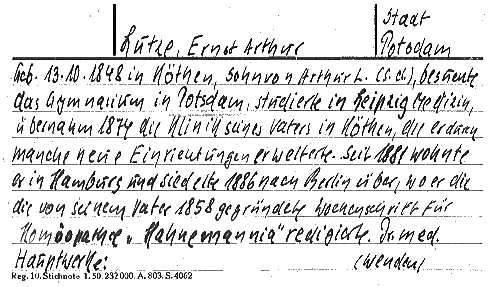 Stadt
Lutze, Ernst Arthur Potsdam
Geb. 13.10.1848 in Köthen, Sohn von Arthur L. (s.d.), besuchte
das Gymnasium in Potsdam, studierte in Leipzig Medizin,
übernahm 1874 die Klinik seines Vaters in Köthen, die er dann
manche neue Einrichtungen erweiterte. Seit 1881 wohnte
er in Hamburg und siedelte 1886 nach Berlin über, wo er die
die von seinem Vater 1858 gegründete Wochenschrift für
Homöopathie „Hahnemannia" redigierte. Dr. med.
Hauptwerke: (wenden)
Reg. 10. Stichnote 1. 50. 232000. A. 803. S. 4062